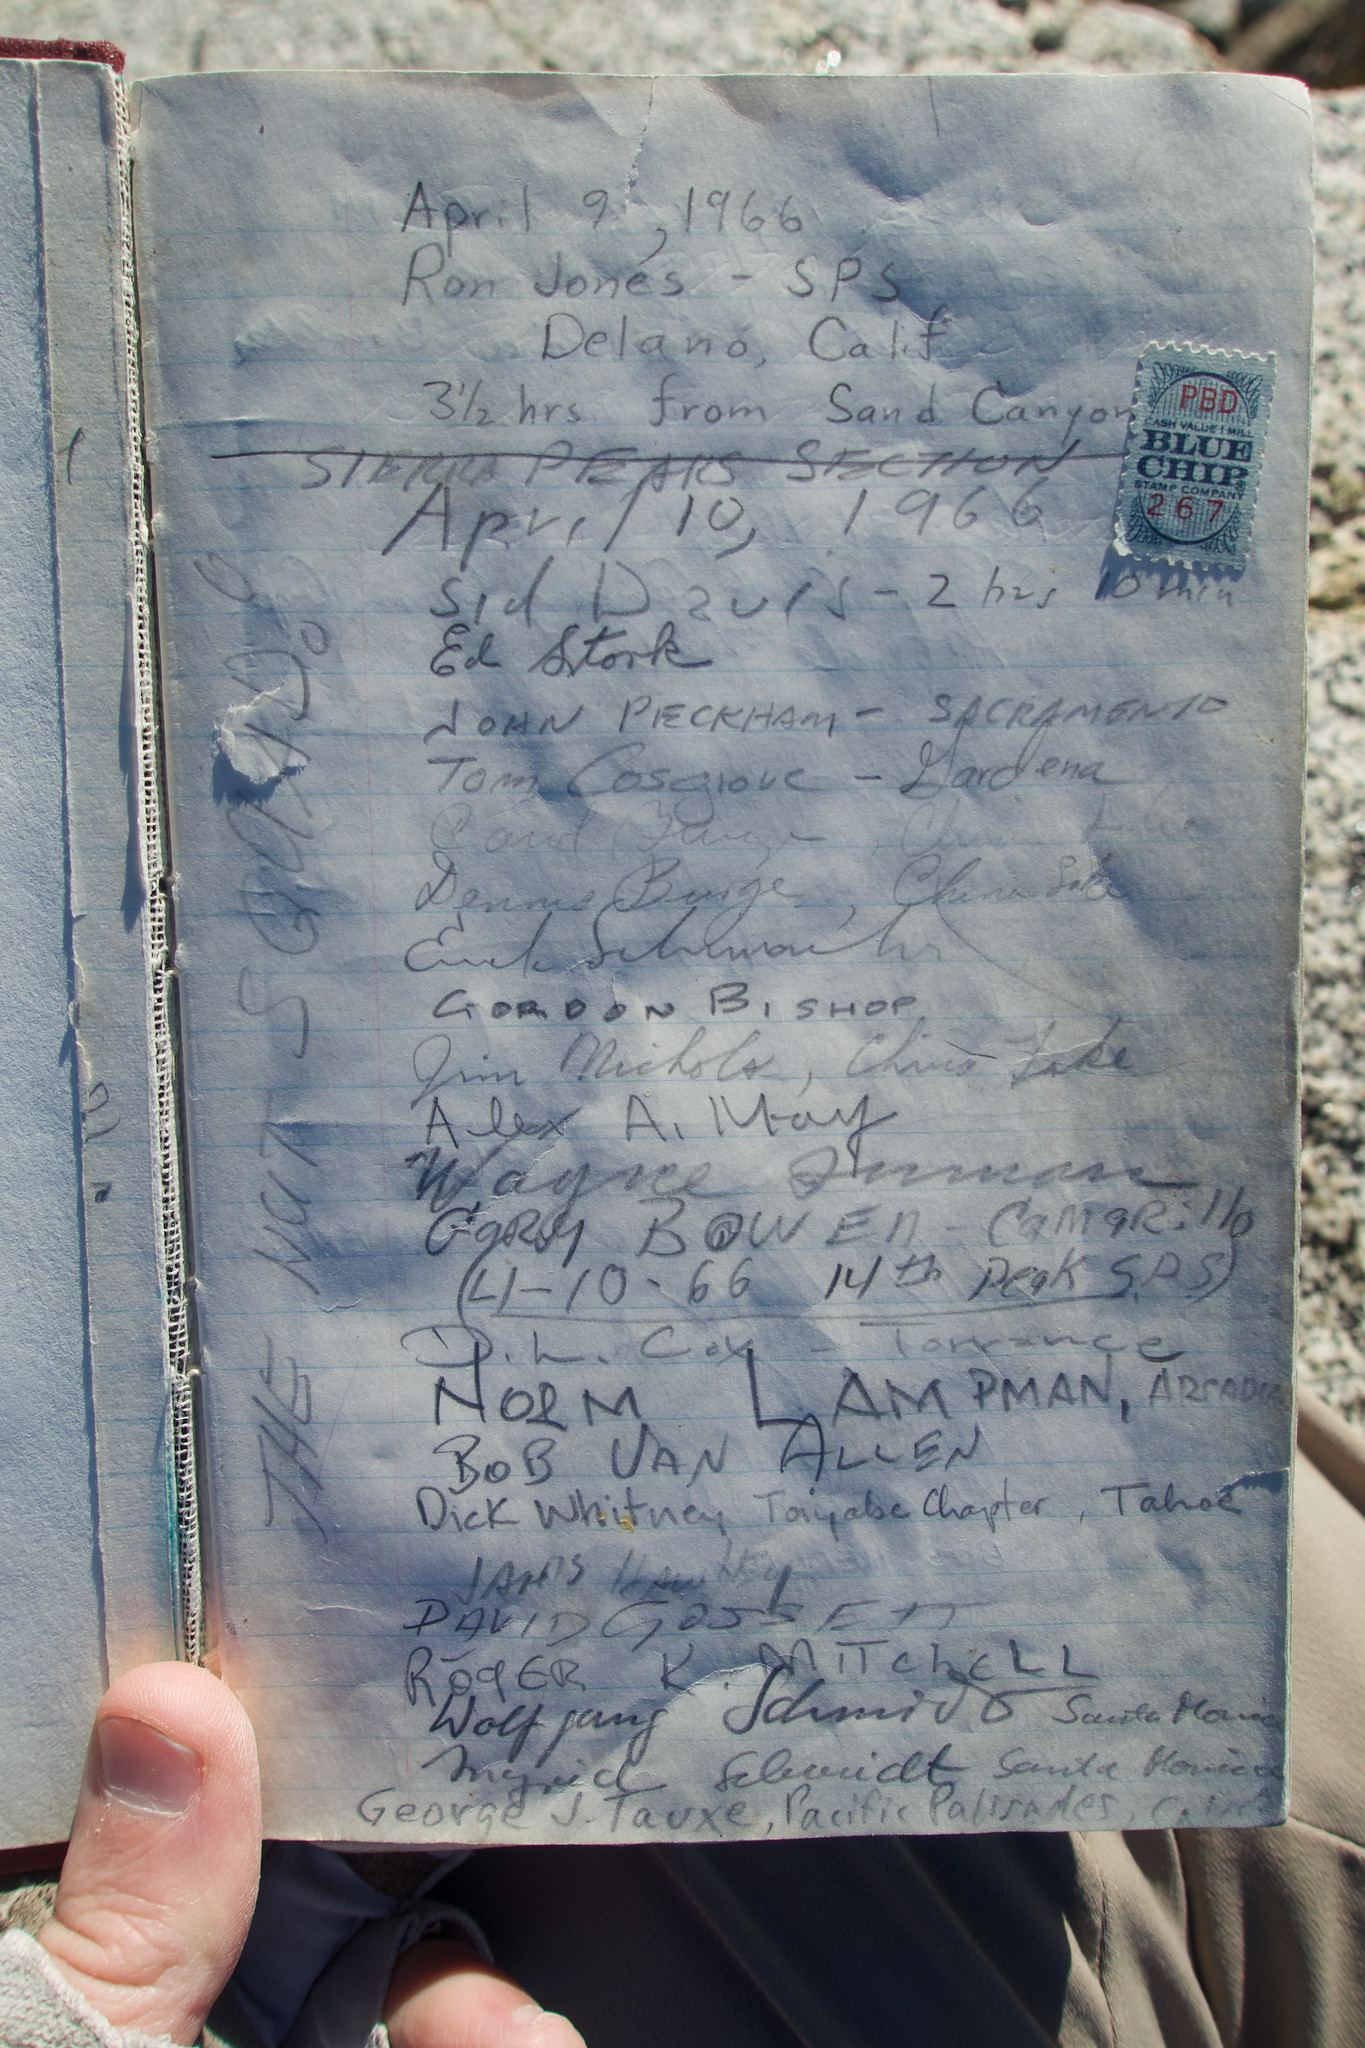 April 9, 1966
Ron Jones - SPS
Delano, Calif
3 1/2 hrs from Sand Canyon
PBD
CASH VALUE 1 MILL
BLUE
CHIP
STAMP COMPANY
267
SIERRA PEAKS SECTION
April 10, 1966
Sid Davis - 2 hrs 10 min
Ed Stork
JOHN PECKHAM - SACRAMENTO
Tom Cosgrove - Gardena
Carol Burge, China Lake
Dennis Burge, China Lake
GORDON BISHOP
Jim Nichols, China Lake
Alex A. May
Wayne
GARY BOWEN - CAMARillo
(4-10-66 14th Peak S.P.S)
D.L. Cox - Torrance
NORM LAMPMAN, ARCADIA
BOB VAN ALLEN
Dick Whitney, Toiyabe Chapter, Tahoe
DAVID GOSSETT
ROGER K. MITCHELL
Wolfgang Schmidt Santa Monica
Ingrid Schmidt Santa Monica
George J. Tauxe, Pacific Palisades, Calif
THE NOT SO GRAND